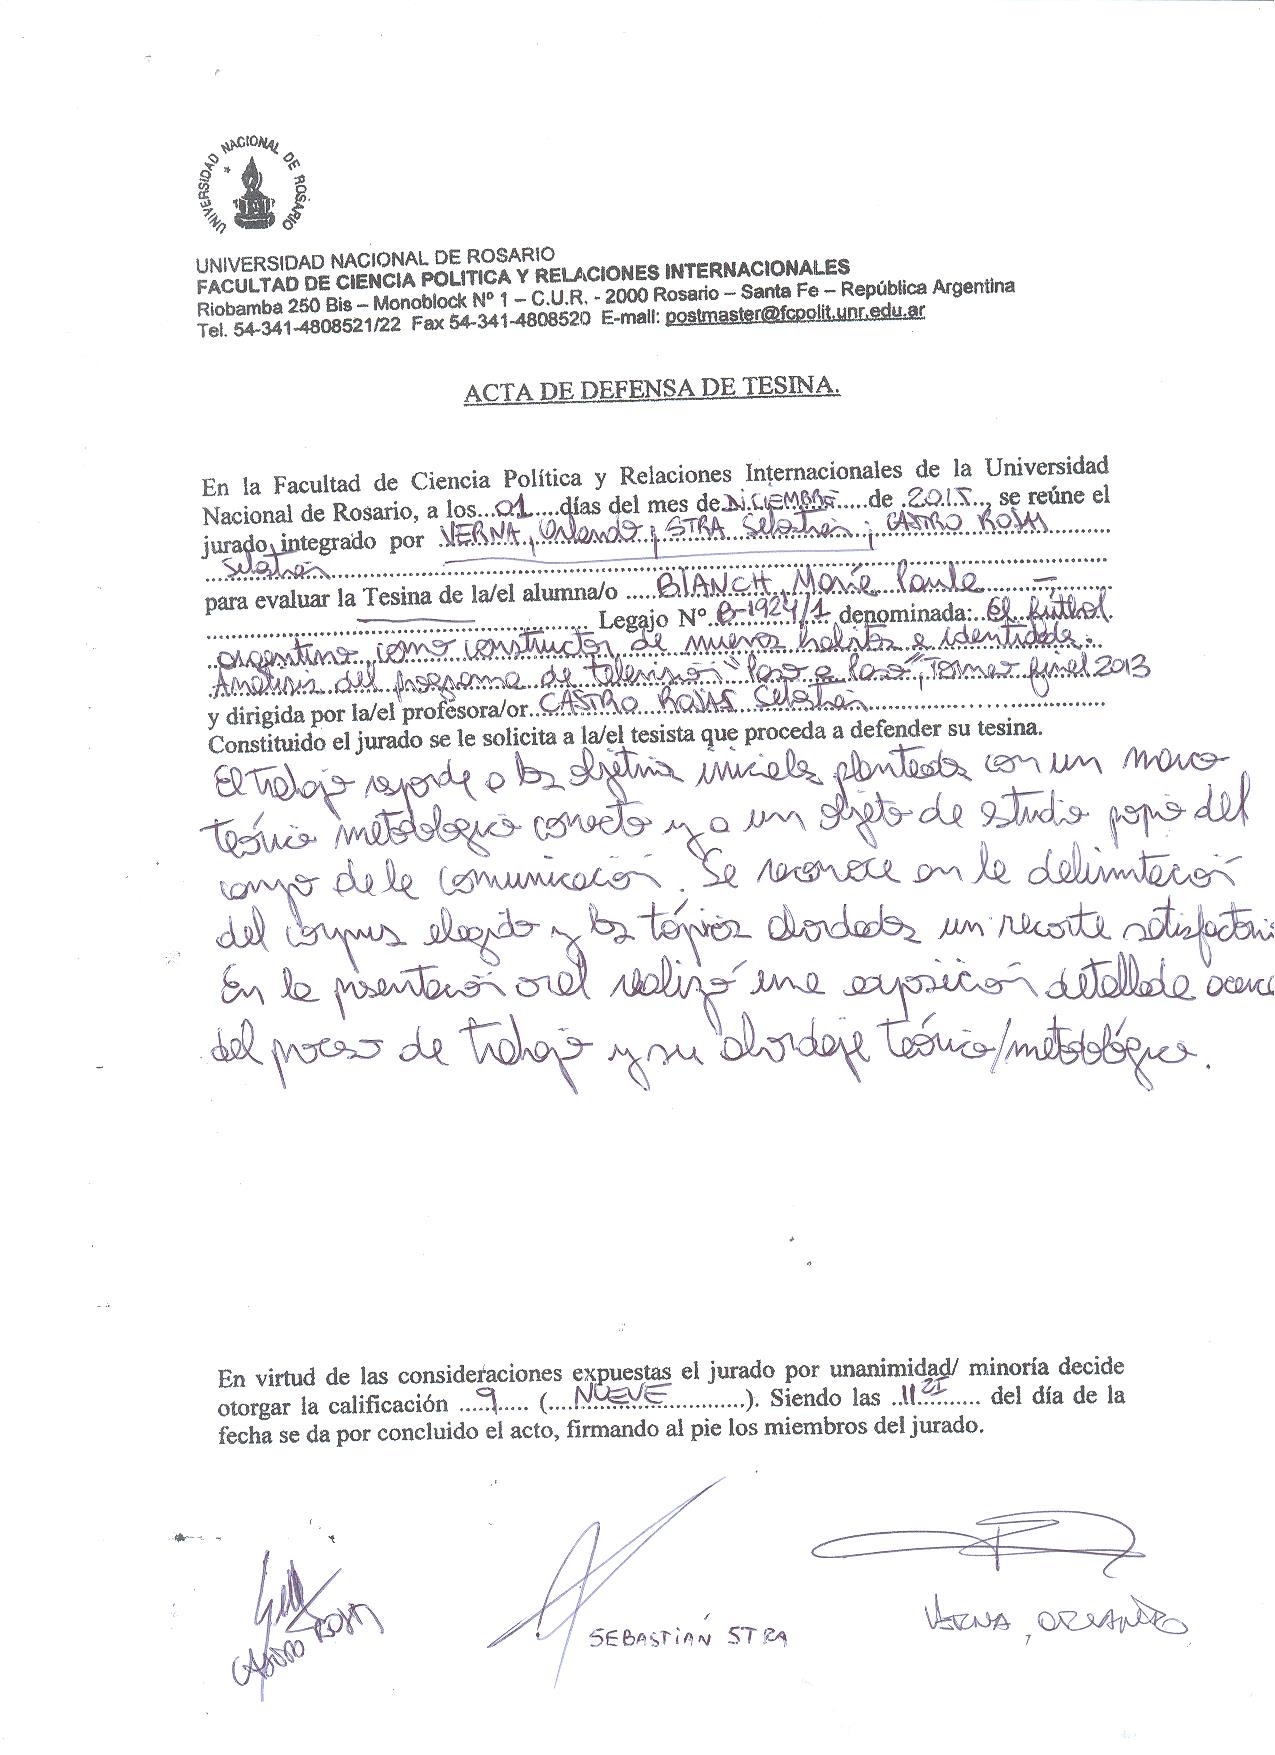 UNIVERSIDAD NACIONAL DE ROSARIO
UNIVERSIDAD NACIONAL DE ROSARIO
FACULTAD DE CIENCIA POLITICA Y RELACIONES INTERNACIONALES
Riobamba 250 Bis – Monoblock Nº 1 – C.U.R. - 2000 Rosario – Santa Fe – República Argentina
Tel. 54-341-4808521/22 Fax 54-341-4808520 E-mail: postmaster@fcpolit.unr.edu.ar
ACTA DE DEFENSA DE TESINA.
En la Facultad de Ciencia Política y Relaciones Internacionales de la Universidad
Nacional de Rosario, a los...01....días del mes de DICIEMBRE.....de .2015.., se reúne el
jurado integrado por VERNA, Orlando; STRA Sebastián; CASTRO ROJAS
Sebastián
para evaluar la Tesina de la/el alumna/o .....BIANCHI, María Paula
Legajo Nº B-1924/1 denominada: El fútbol
argentino como constructor de nuevos hábitos e identidades.
Análisis del programa de televisión "Paso a Paso", Torneo final 2013
y dirigida por la/el profesora/or CASTRO ROJAS Sebastián
Constituido el jurado se le solicita a la/el tesista que proceda a defender su tesina.
El trabajo responde a los objetivos iniciales planteados con un marco
teórico metodológico correcto y a un objeto de estudio propio del
campo de la comunicación. Se reconoce en la delimitación
del corpus elegido y los tópicos abordados un recorte satisfactorio
En la presentación oral realizó una exposición detallada acerca
del proceso de trabajo y su abordaje teórico/metodológico.
En virtud de las consideraciones expuestas el jurado por unanimidad/ minoría decide
otorgar la calificación .....9..... (....NUEVE............). Siendo las ..11 21......... del día de la
fecha se da por concluido el acto, firmando al pie los miembros del jurado.
CASTRO ROJAS
SEBASTIÁN STRA
VERNA, ORLANDO